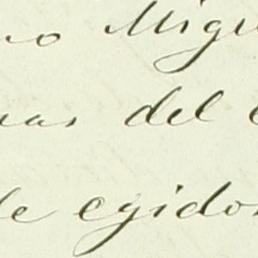 no Migu
nas del
de egidos